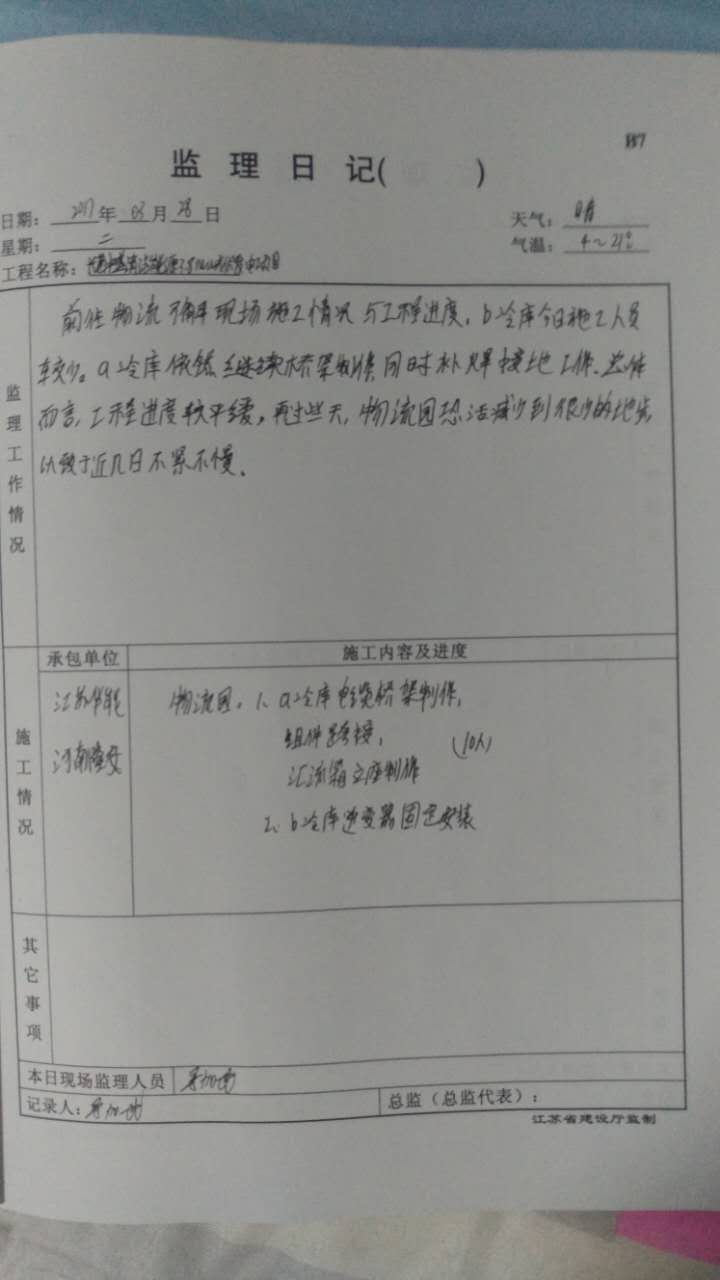 B7
监理日记( )
日期: 2017年 03月 28日
天气: 晴
星期: 二
气温: 4~21℃
工程名称:
监理工作情况
前往物流了解现场施工情况与工程进度,b冷库今日施工人员
较少。a冷库依然继续桥架制作同时补焊接地工作、总体
而言,工程进度较平缓,再过些天,物流园恐活减少到很少的地步,
以致于近几日不紧不慢。
承包单位
施工内容及进度
施工情况
江苏华能
物流园:1、a冷库电缆桥架制作,
组件跨接, (10人)
河南
汇流箱立座制作
2、b冷库逆变器固定安装
其它事项
本日现场监理人员
记录人:
总监(总监代表):
江苏省建设厅监制